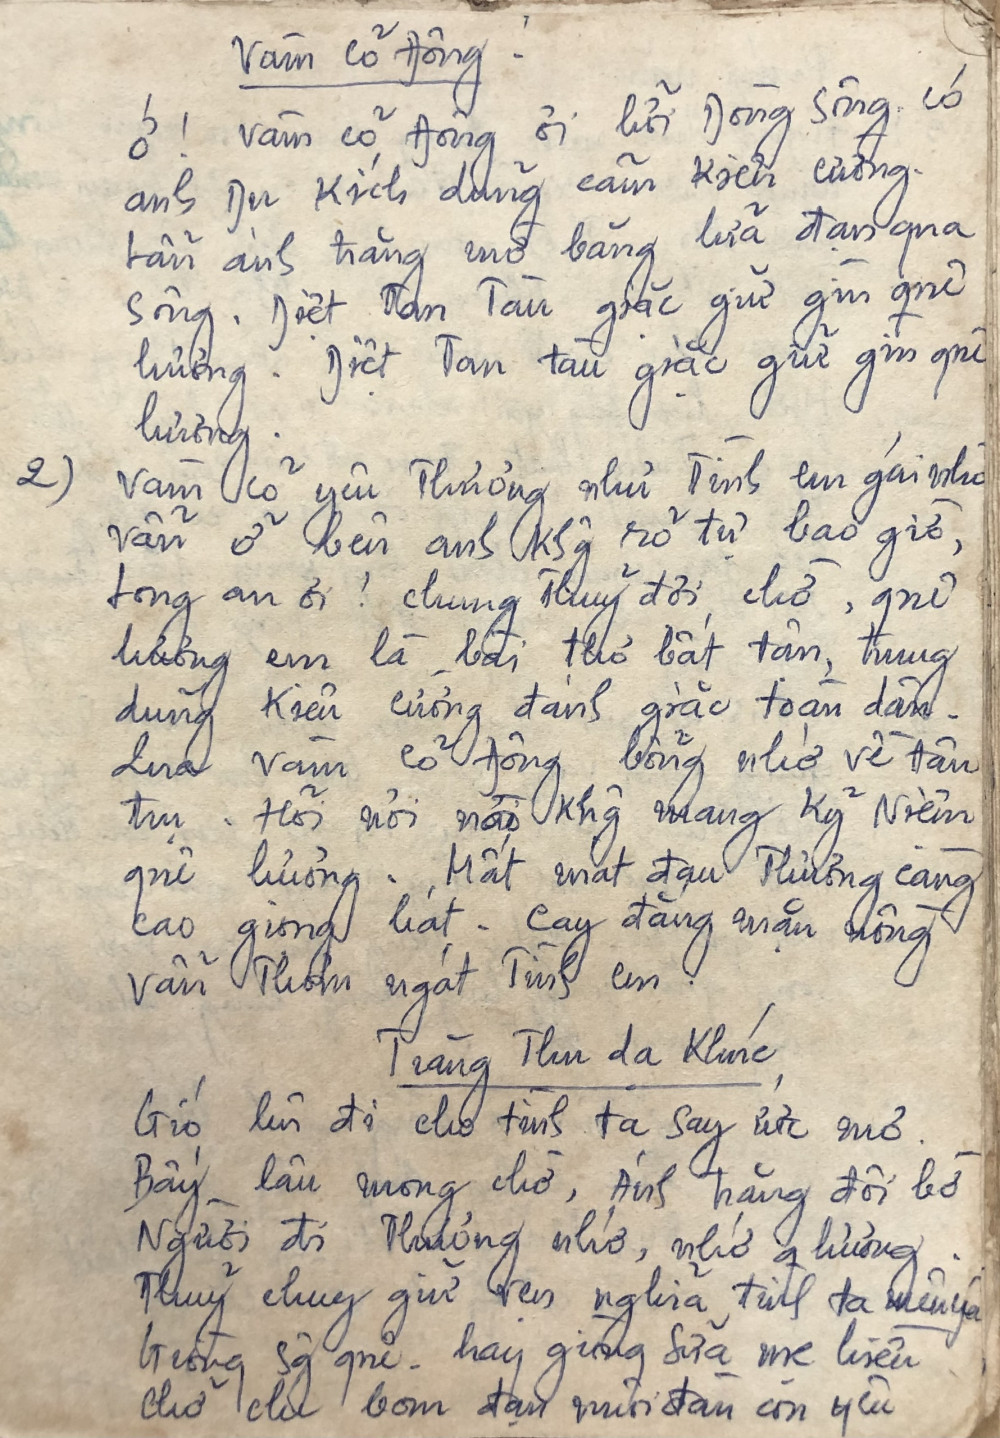 Vàm cỏ Đông :
Ớ ! vàm cỏ Đông ơi hỡi Dòng Sông có
anh Du Kích dũng cảm Kiên cường.
tấn ánh trăng mơ băng lửa đạn qua
Sông. Diệt Tan Tàu giặc giữ gìn quê
hương. Diệt Tan tàu giặc giữ gìn quê
hương.
2) Vàm cỏ yêu Thương như Tình em gái nhỏ
vẫn ở bên anh Khg rõ tự bao giờ,
Long an ơi ! chung Thuỷ đời chờ, quê
hương em là bài thơ bất tận, trung
dũng Kiên cường đánh giặc toàn dân.
Qua vàm cỏ Đông bỗng nhớ về tân
trụ. Hỏi nơi nào Khg mang Kỷ Niệm
quê hương. Mất mát đau Thương càng
cao giọng hát. Cay đắng mặn nồng
vẫn Thơm ngát Tình em.
Trăng Thu dạ Khúc
Gió lên đi cho tình ta say ước mơ.
Bấy lâu mong chờ, Ánh trăng đôi bờ
Người đi Thương nhớ, nhớ q hương.
Thuỷ chung giữ vẹn nghĩa tình ta
Giòng sg quê. hay giòng sữa mẹ hiền
chở che bom đạn nuôi đàn con yêu